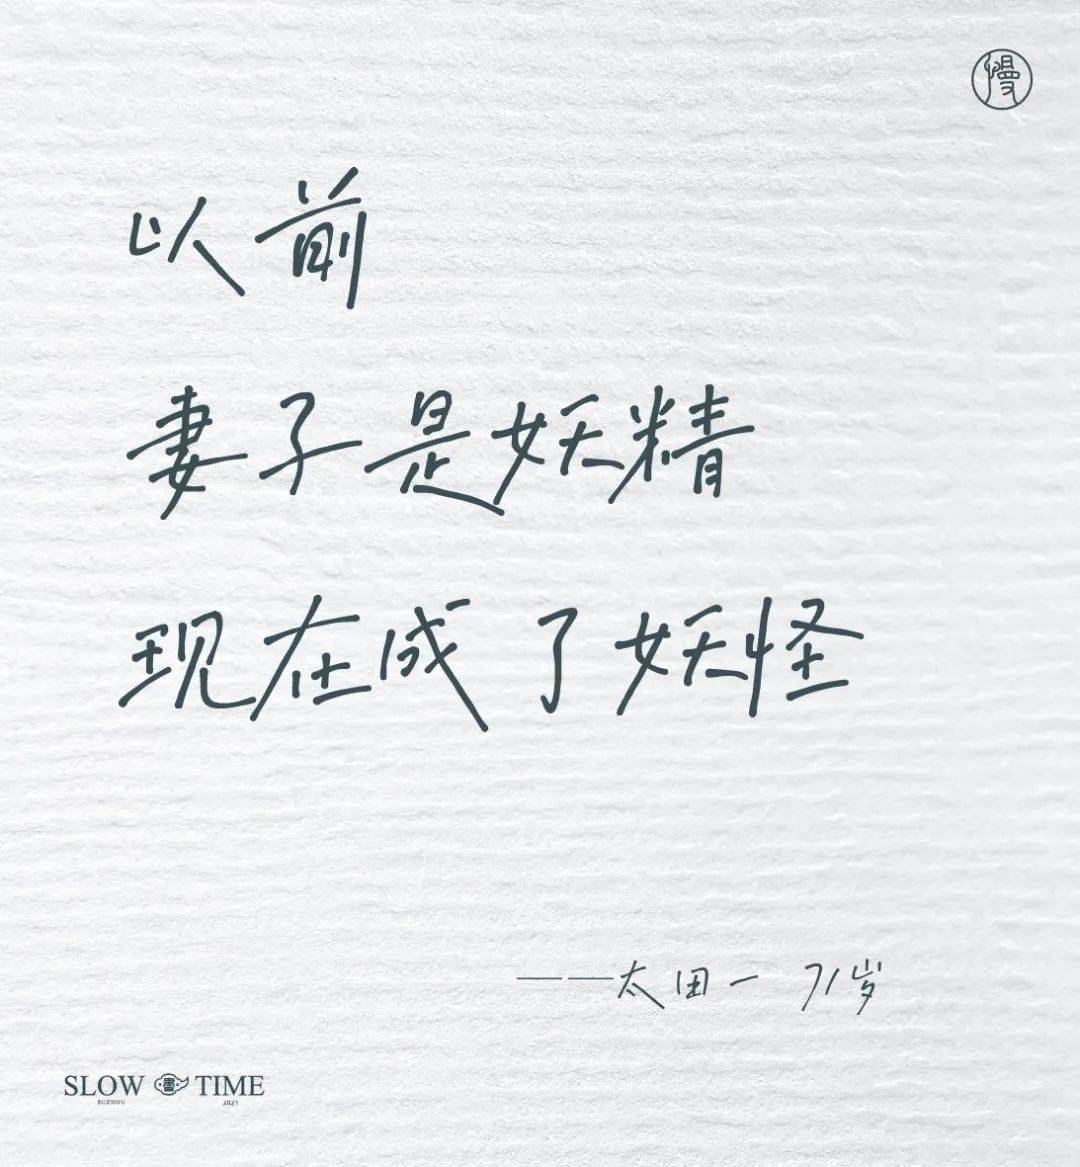 慢
以前
妻子是妖精
现在成了妖怪
——太田一 71岁
SLOW TIME
SUZHOU 2021